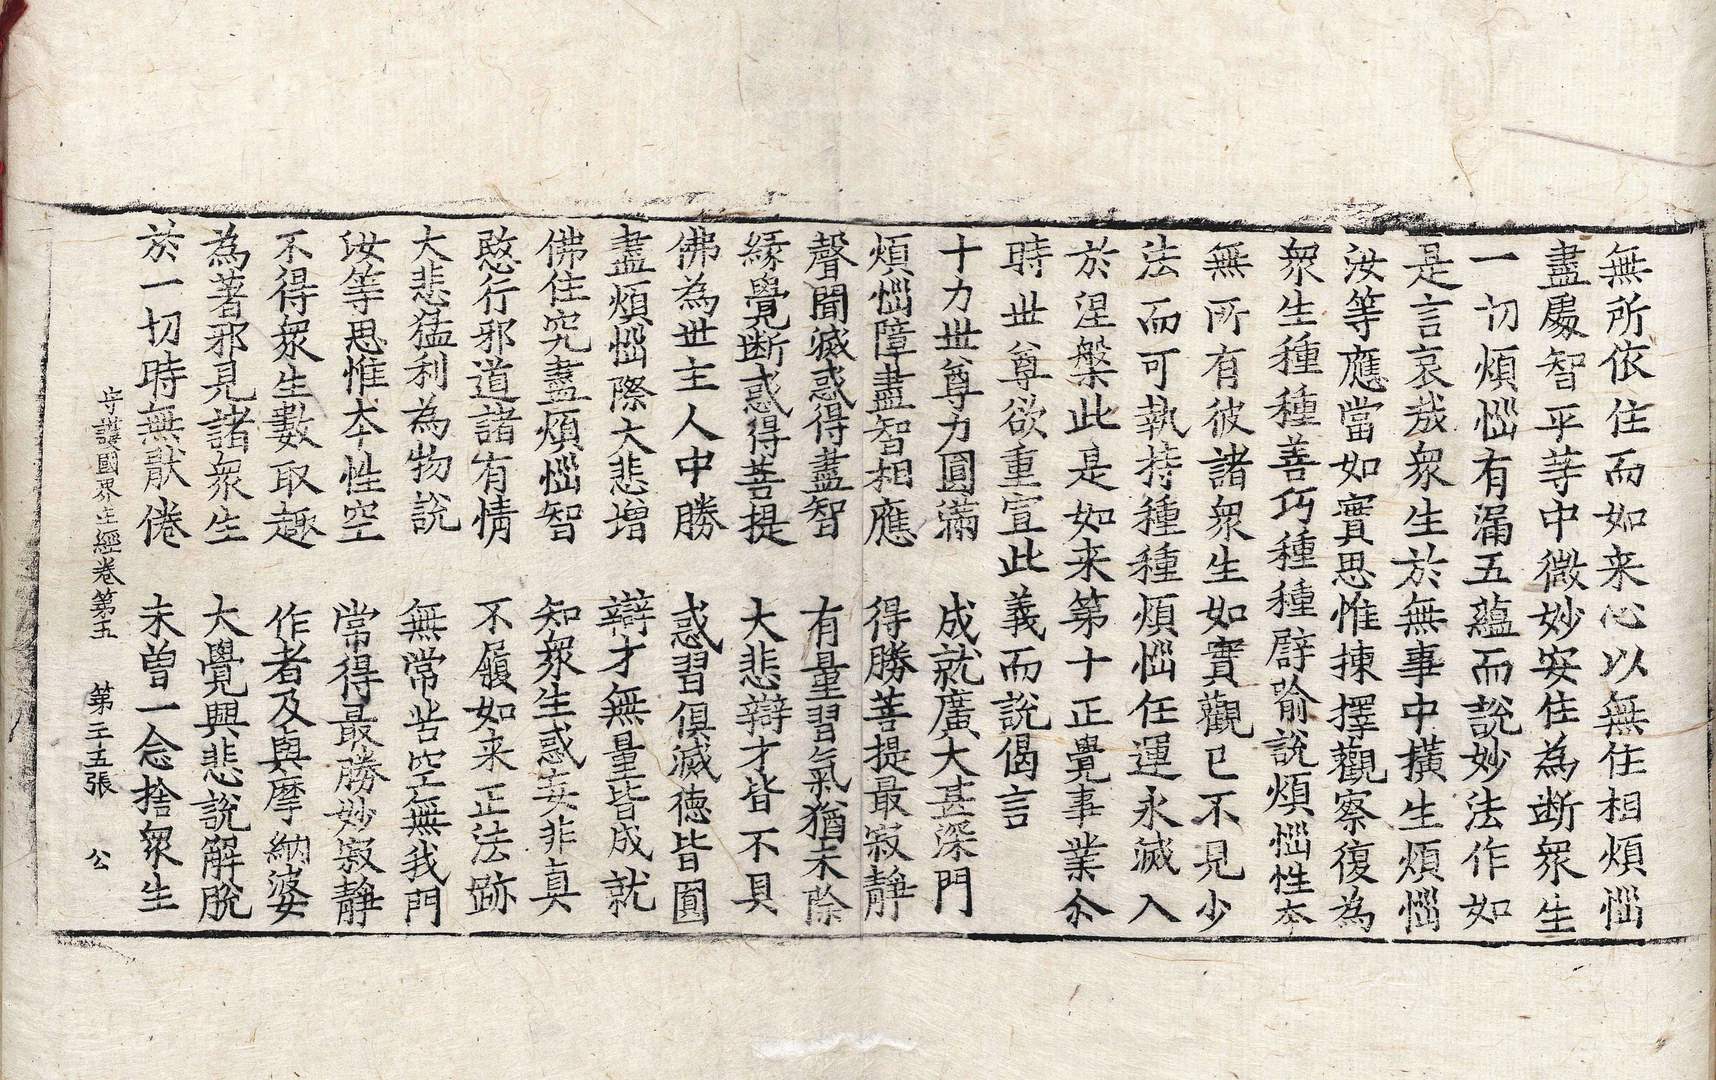 無所依住而如来心以無住相煩惱
盡處智平等中微妙安住為断衆生
一切煩惱有漏五蘊而說妙法作如
是言哀㢤衆生於無事中橫生煩惱
汝等應當如實思惟揀擇觀察復為
衆生種種善巧種種譬喻說煩惱性本
無所有彼諸衆生如實觀已不見少
法而可執持種種煩惱任運永滅入
於涅槃此是如来第十正覺事業尒
時世尊欲重宣此義而說偈言
十力世尊力圓滿　成就廣大甚深門
煩惱障盡智相應　得勝菩提最寂靜
聲聞滅惑得盡智　有量習氣猶未除
緣覺断惑得菩提　大悲辯才皆不具
佛為世主人中勝　惑習俱滅德皆圓
盡煩惱際大悲增　辯才無量皆成就
佛住究盡煩惱智　知衆生惑妄非真
愍行邪道諸有情　不履如来正法跡
大悲猛利為物說　無常苦空無我門
汝等思惟本性空　常得最勝妙寂靜
不得衆生數取趣　作者及與摩納婆
為著邪見諸衆生　大覺興悲說解脫
於一切時無猒倦　未曾一念捨衆生
守護國界主經卷第五　第二十五張　公